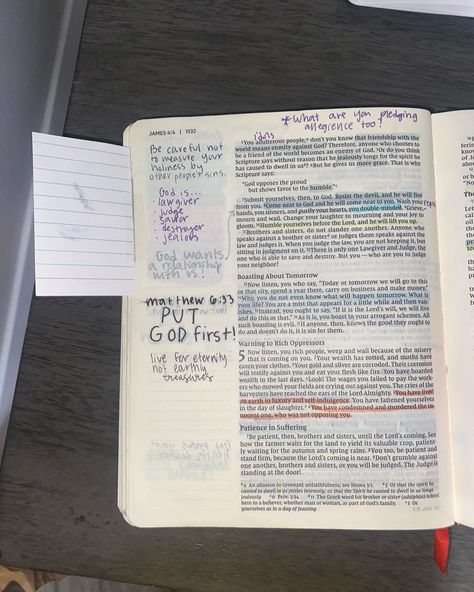 *What are you pledging
allegience too?
JAMES 4:4 | 1532
Be careful not
to measure your
holiness by
other peoples sins.
God is...
lawgiver
judge
savior
destroyer
jealous
God wants
a relationship
with us
matthew 6:33
PUT
GOD first!
live for eternity
not earthly
treasures
idols
⁴You adulterous people, don't you know that friendship with the
world means enmity against God? Therefore, anyone who chooses to
be a friend of the world becomes an enemy of God. ⁵Or do you think
Scripture says without reason that he jealously longs for the spirit he
has caused to dwell in us? ⁶But he gives us more grace. That is why
Scripture says:
"God opposes the proud
but shows favor to the humble."
⁷Submit yourselves, then, to God. Resist the devil, and he will flee
from you. ⁸Come near to God and he will come near to you. Wash your
hands, you sinners, and purify your hearts, you double-minded. ⁹Grieve,
mourn and wail. Change your laughter to mourning and your joy to
gloom. ¹⁰Humble yourselves before the Lord, and he will lift you up.
¹¹Brothers and sisters, do not slander one another. Anyone who
speaks against a brother or sister or judges them speaks against the
law and judges it. When you judge the law, you are not keeping it, but
sitting in judgment on it. ¹²There is only one Lawgiver and Judge, the
one who is able to save and destroy. But you — who are you to judge
your neighbor?
Boasting About Tomorrow
¹³Now listen, you who say, "Today or tomorrow we will go to this
or that city, spend a year there, carry on business and make money."
¹⁴Why, you do not even know what will happen tomorrow. What is
your life? You are a mist that appears for a little while and then van-
ishes. ¹⁵Instead, you ought to say, "If it is the Lord's will, we will live
and do this or that." ¹⁶As it is, you boast in your arrogant schemes. All
such boasting is evil. ¹⁷If anyone, then, knows the good they ought to
do and doesn't do it, it is sin for them.
Warning to Rich Oppressors
5 Now listen, you rich people, weep and wail because of the misery
that is coming on you. ²Your wealth has rotted, and moths have
eaten your clothes. ³Your gold and silver are corroded. Their corrosion
will testify against you and eat your flesh like fire. You have hoarded
wealth in the last days. ⁴Look! The wages you failed to pay the work-
ers who mowed your fields are crying out against you. The cries of the
harvesters have reached the ears of the Lord Almighty. ⁵You have lived
on earth in luxury and self-indulgence. You have fattened yourselves
in the day of slaughter. ⁶You have condemned and murdered the in-
nocent one, who was not opposing you.
Patience in Suffering
⁷Be patient, then, brothers and sisters, until the Lord's coming. See
how the farmer waits for the land to yield its valuable crop, patient-
ly waiting for the autumn and spring rains. ⁸You too, be patient and
stand firm, because the Lord's coming is near. ⁹Don't grumble against
one another, brothers and sisters, or you will be judged. The Judge is
standing at the door!
4 An allusion to covenant unfaithfulness; see Hosea 3:1. 5 Or that the spirit he
caused to dwell in us envies intensely; or that the Spirit he caused to dwell in us longs
jealously 6 Prov. 3:34 11 The Greek word for brother or sister (adelphos) refers
here to a believer, whether man or woman, as part of God's family. 5 Or
yourselves as in a day of feasting